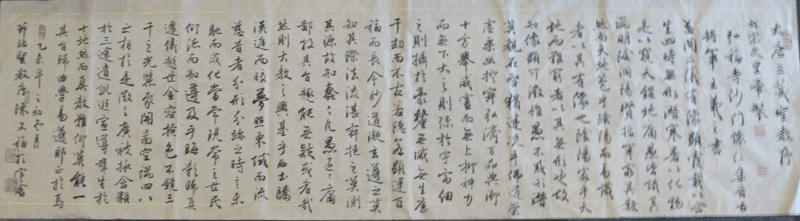 大唐三藏聖教序
太宗文皇帝製
弘福寺沙門懷仁集晉右
將軍王羲之書
蓋聞二儀有像顯覆載以含
生四時無形潛寒暑以化物
是以窺天鑑地庸愚皆識其
端明陰洞陽賢哲罕窮其數
然而天地苞乎陰陽而易識
者以其有像也陰陽處乎天
地而難窮者以其無形也故
知像顯可徵雖愚不惑形潛
莫覩在智猶迷況乎佛道崇
虛乘幽控寂弘濟萬品典御
十方舉威靈而無上抑神力
而無下大之則彌於宇宙細
之則攝於毫釐無滅無生歷
千劫而不古若隱若顯運百
福而長今妙道凝玄遵之莫
知其際法流湛寂挹之莫測
其源故知蠢蠢凡愚區區庸
鄙投其旨趣能無疑惑者哉
然則大教之興基乎西土騰
漢庭而皎夢照東域而流
慈昔者分形分跡之時言未
馳而成化當常現常之世民
仰德而知遵及乎晦影歸真
遷儀越世金容掩色不鏡三
千之光麗象開圖空端四八
之相於是微言廣被拯含類
於三途遺訓遐宣導群生於
十地然而真教難仰莫能一
其旨歸曲學易遵邪正於焉
乙未年之初冬月
節臨聖教序陳又福於